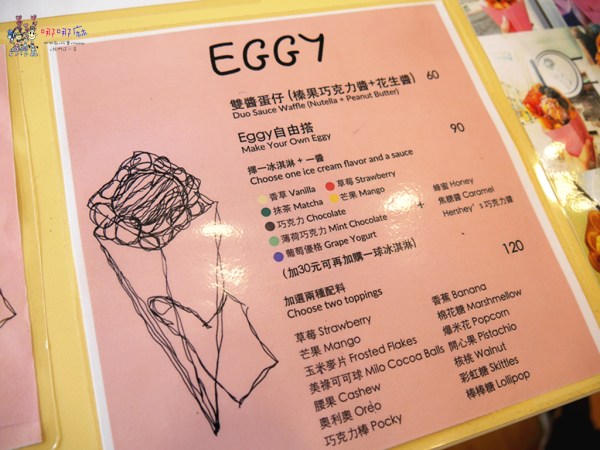 哪哪麻
EGGY
雙醬蛋仔 (榛果巧克力醬+花生醬) 60
Duo Sauce Waffle (Nutella + Peanut Butter)
Eggy自由搭 90
Make Your Own Eggy
擇一冰淇淋 + 一醬
Choose one ice cream flavor and a sauce
香草 Vanilla 草莓 Strawberry
抹茶 Matcha 芒果 Mango
巧克力 Chocolate
薄荷巧克力 Mint Chocolate
葡萄優格 Grape Yogurt
+
蜂蜜 Honey
焦糖醬 Caramel
Hershey's巧克力醬
(加30元可再加購一球冰淇淋)
加選兩種配料 120
Choose two toppings
草莓 Strawberry
芒果 Mango
玉米麥片 Frosted Flakes
美祿可可球 Milo Cocoa Balls
腰果 Cashew
奧利奧 Oreo
巧克力棒 Pocky
香蕉 Banana
棉花糖 Marshmellow
爆米花 Popcorn
開心果 Pistachio
核桃 Walnut
彩虹糖 Skittles
棒棒糖 Lollipop